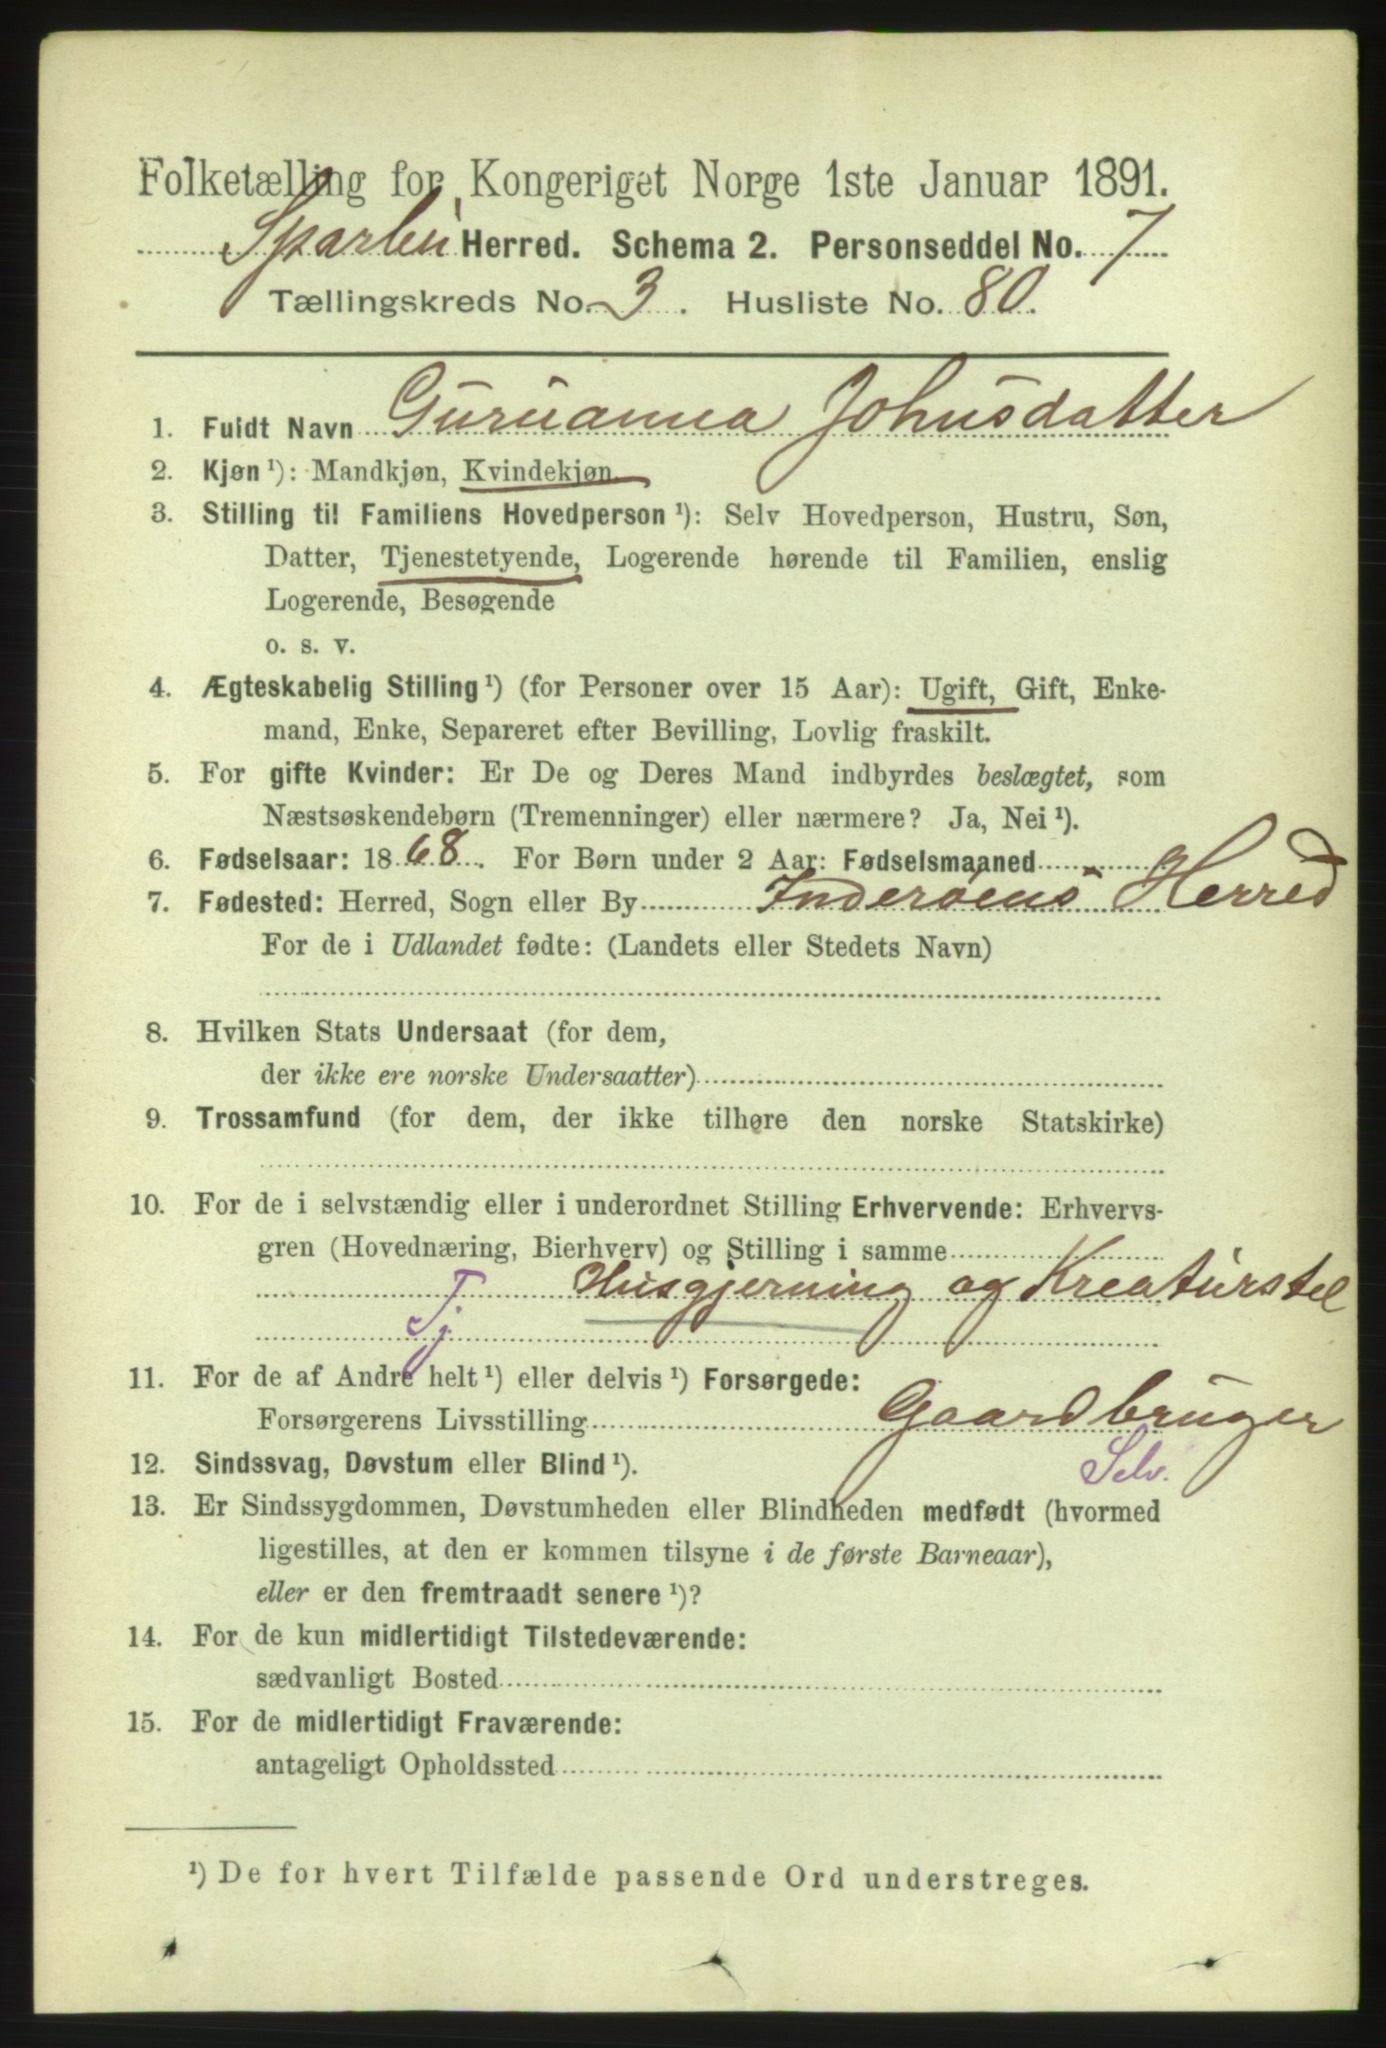 Folketælling for Kongeriget Norge 1ste Januar 1891.
Sparbu Herred. Schema 2. Personseddel No. 7
Tællingskreds No. 3. Husliste No. 80.
1. Fuldt Navn Guruanna Johnsdatter
2. Kjøn ¹): Mandkjøn, Kvindekjøn.
3. Stilling til Familiens Hovedperson ¹): Selv Hovedperson, Hustru, Søn,
Datter, Tjenestetyende, Logerende hørende til Familien, enslig
Logerende, Besøgende
o. s. v.
4. Ægteskabelig Stilling ¹) (for Personer over 15 Aar): Ugift, Gift, Enke-
mand, Enke, Separeret efter Bevilling, Lovlig fraskilt.
5. For gifte Kvinder: Er De og Deres Mand indbyrdes beslægtet, som
Næstsøskendebørn (Tremenninger) eller nærmere? Ja, Nei ¹).
6. Fødselsaar: 1868. For Børn under 2 Aar: Fødselsmaaned
7. Fødested: Herred, Sogn eller By Inderøens Herred
For de i Udlandet fødte: (Landets eller Stedets Navn)
8. Hvilken Stats Undersaat (for dem,
der ikke ere norske Undersaatter)
9. Trossamfund (for dem, der ikke tilhøre den norske Statskirke)
10. For de i selvstændig eller i underordnet Stilling Erhvervende: Erhvervs-
gren (Hovednæring, Bierhverv) og Stilling i samme
Tj. Husgjerning og Kreaturstel
11. For de af Andre helt ¹) eller delvis ¹) Forsørgede:
Forsørgerens Livsstilling Gaardbruger
12. Sindssvag, Døvstum eller Blind ¹). Selv.
13. Er Sindssygdommen, Døvstumheden eller Blindheden medfødt (hvormed
ligestilles, at den er kommen tilsyne i de første Barneaar),
eller er den fremtraadt senere ¹)?
14. For de kun midlertidigt Tilstedeværende:
sædvanligt Bosted
15. For de midlertidigt Fraværende:
antageligt Opholdssted
¹) De for hvert Tilfælde passende Ord understreges.